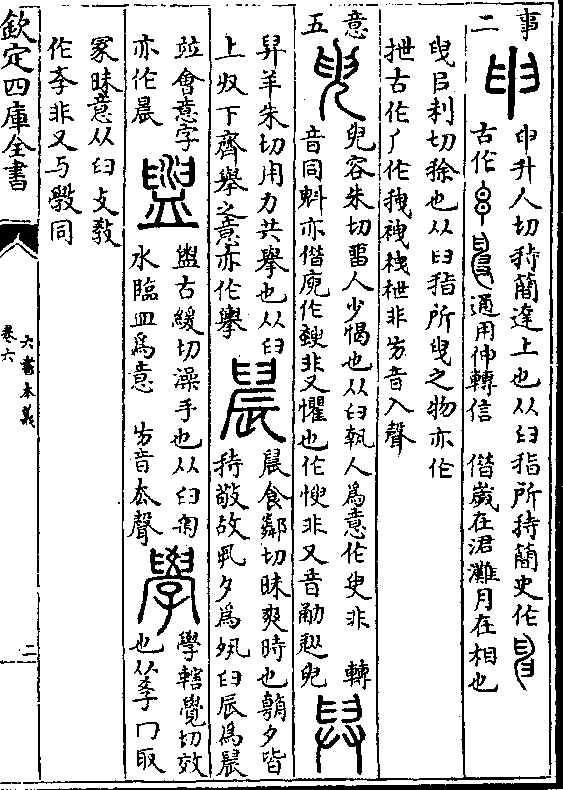 事二
申升人切持簡達上也从臼指所持簡史作
古作通用伸轉信 借歲在涒灘月在相也
曳㠯利切捈也从臼指所曳之物亦作
抴古作厂作拽袣栧枻非方音入聲
意五
臾容朱切畱人少愒也从臼執人爲意作㬰非 轉
音同斞亦借庾作非又懼也作㥚非又音勈慫臾
舁羊朱切用力共舉也从臼
上廾下齊舉之意亦作擧
晨食鄰切昧爽時也朝夕皆
持敬故丮夕爲夙臼辰爲晨
並會意字
亦作晨
盥古緩切澡手也从臼匊
水臨皿爲意 方音去聲
學轄覺切效
也从季冂取
冡昧意从臼爻教
作李非又与斆同
欽定四庫全書
六書本義
卷六
二